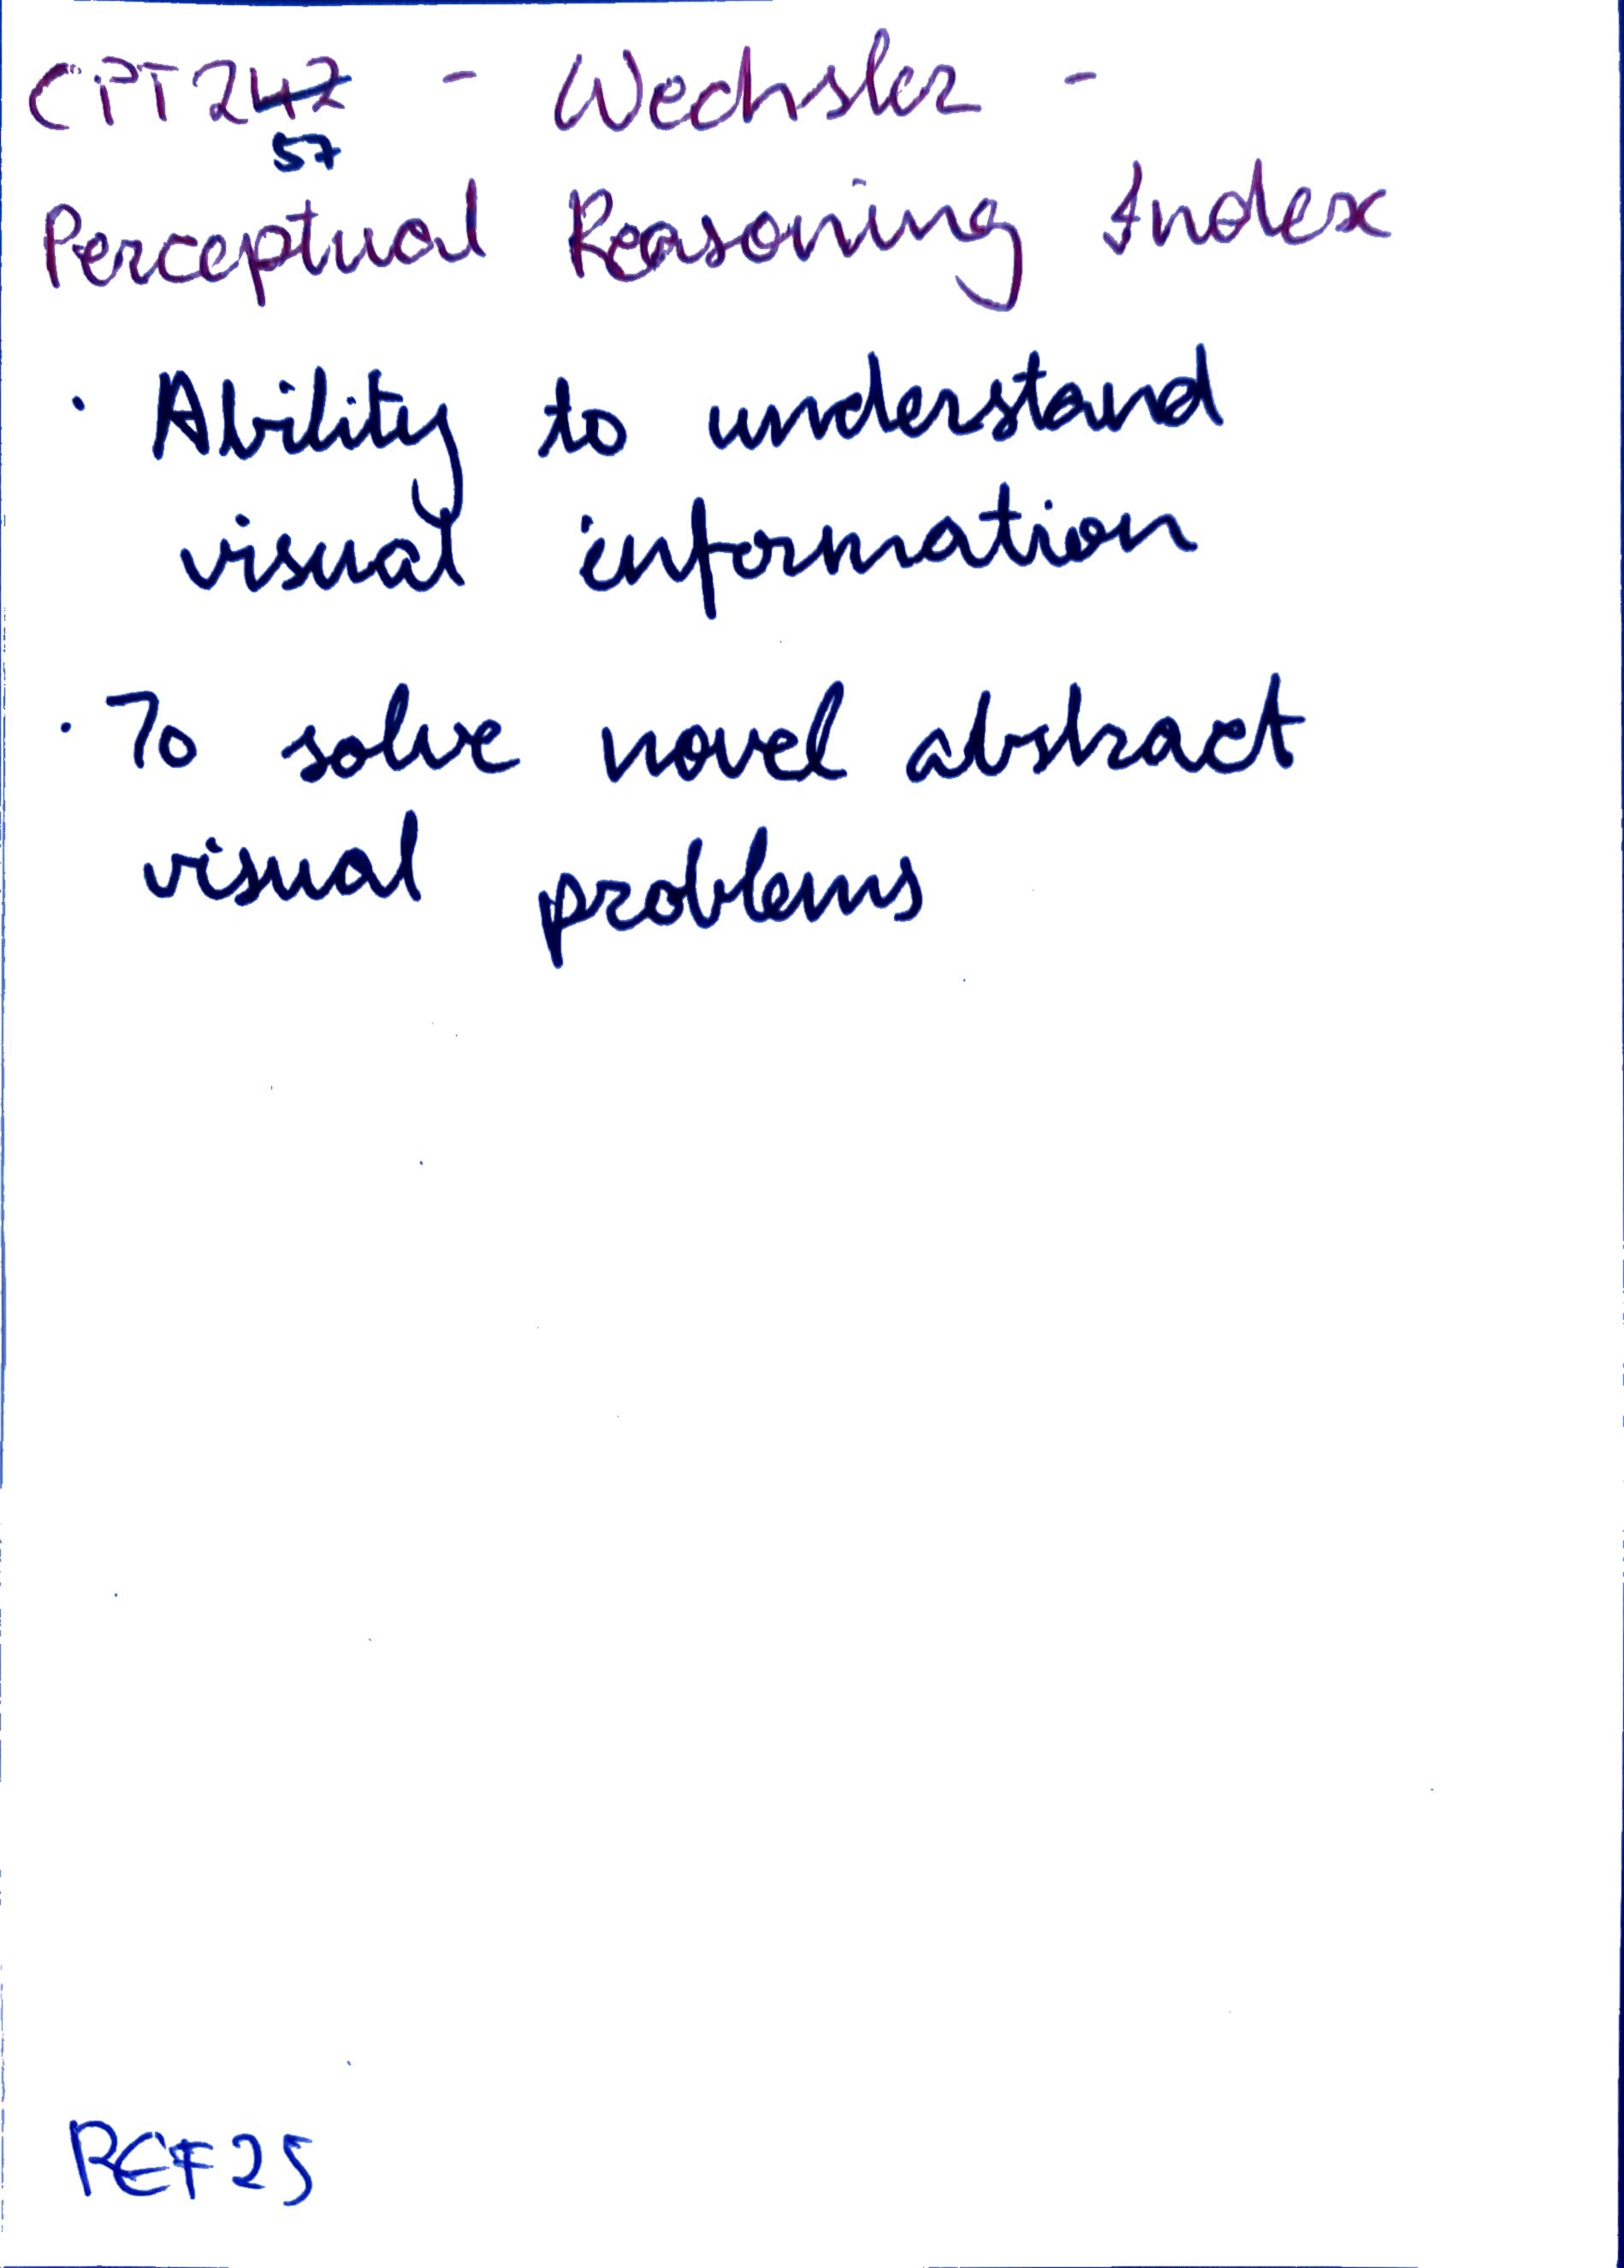 CiPT 247 - Wechsler -
57
Perceptual Reasoning Index
· Ability to understand
visual information
· To solve novel abstract
visual problems
REF 25